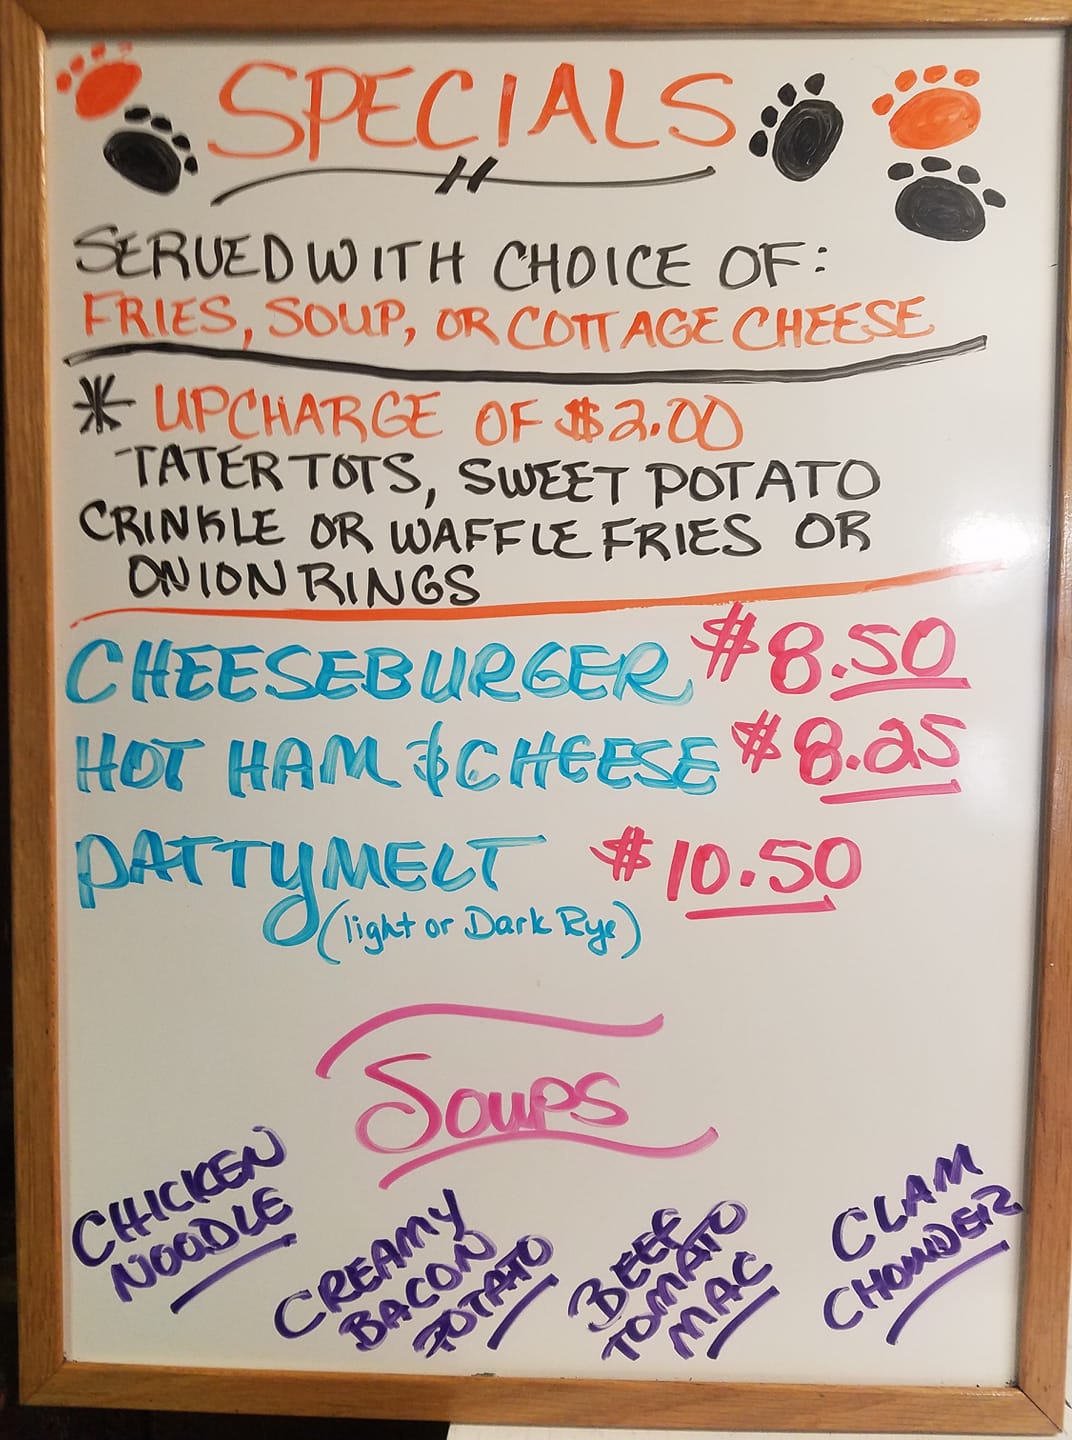 SPECIALS
SERVED WITH CHOICE OF:
FRIES, SOUP, OR COTTAGE CHEESE
* UPCHARGE OF $2.00
TATER TOTS, SWEET POTATO
CRINKLE OR WAFFLE FRIES OR
ONION RINGS
CHEESEBURGER $8.50
HOT HAM & CHEESE $8.25
PATTYMELT $10.50
(light or Dark Rye)
Soups
CHICKEN
NOODLE
CREAMY
BACON
POTATO
BEEF
TOMATO
MAC
CLAM
CHOWDER